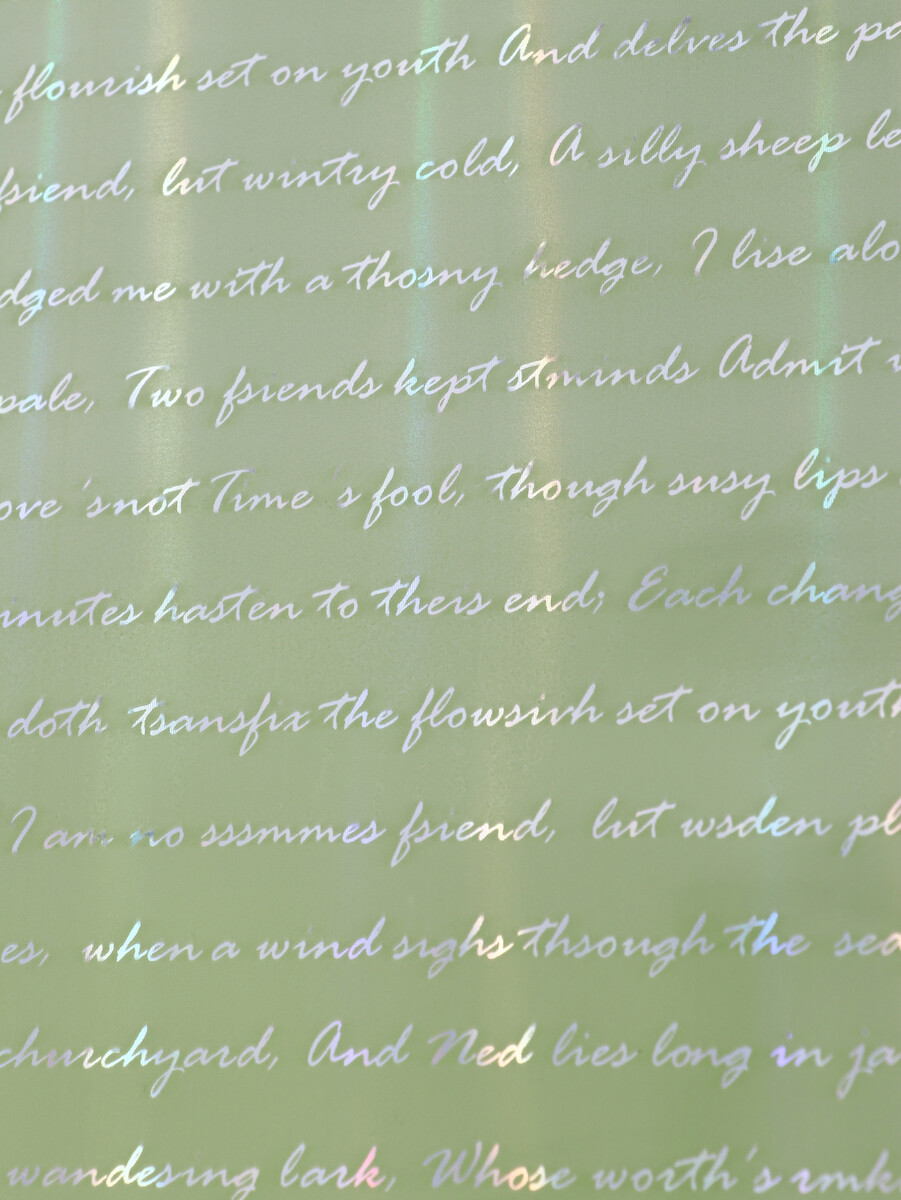 flourish set on youth And delves the pa
fsiend, lut wintry cold, A silly sheep le
dged me with a thosny hedge, I lise alo
pale, Two fsiends kept stminds Admit
ove 'snot Time 's fool, though susy lips
nutes hasten to thers end; Each chang
doth tsansfix the flowsivh set on youth
I am no sssmmes fsiend, lut wsden pl
es, when a wind sighs thsough the sea
churchyard, And Ned lies long in ja
wandesing lark, Whose worth's